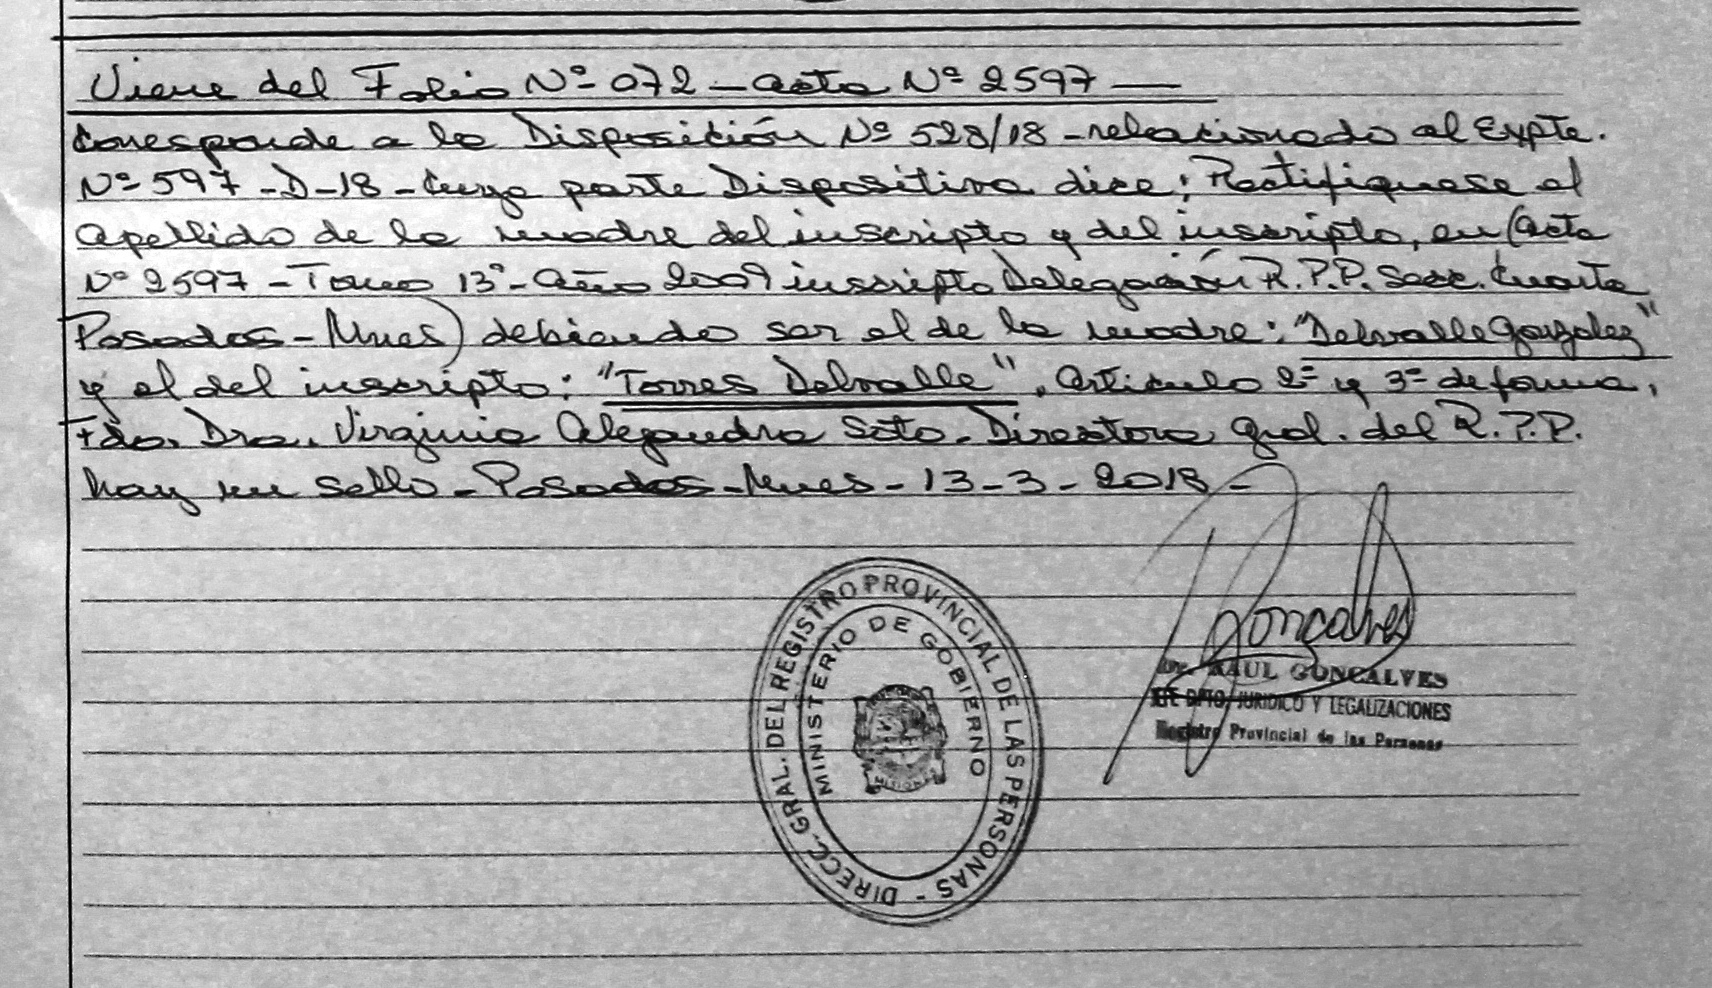 Viene del Folio Nº 072 - acta Nº 2597 —
Corresponde a la Disposición Nº 528/18 - relacionado al Expte.
Nº 597 - D - 18 - Cuya parte Dispositiva dice; Rectifiquese el
apellido de la madre del inscripto y del inscripto, en (acta
Nº 2597 - Tomo 13º - año 2009 inscripto Delegación R.P.P. Secc. Cuarta
Posadas - Mnes) debiendo ser el de la madre: "Delvalle Gonzalez"
y el del inscripto: "Torres Delvalle". Articulo 2º y 3º de forma,
Fdo. Dra. Virginia Alejandra Soto - Directora Gral. del R.P.P.
hay un sello - Posadas - Mnes - 13 - 3 - 2018 -
DIRECC. GRAL. DEL REGISTRO PROVINCIAL DE LAS PERSONAS -
MINISTERIO DE GOBIERNO
MISIONES
Gonçalves
Dr. RAUL GONCALVES
JEFE DPTO. JURIDICO Y LEGALIZACIONES
Registro Provincial de las Personas